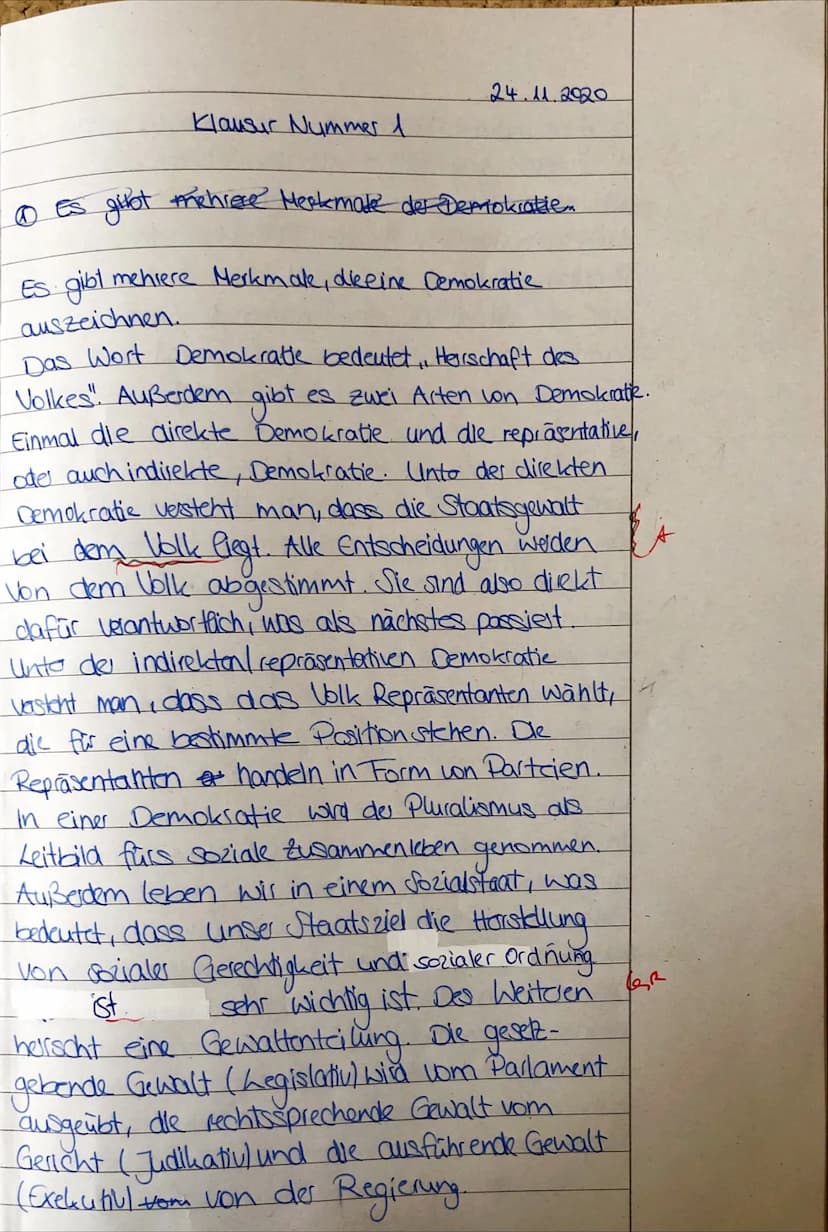 24.11.2020
Klausur Nummer 1
① Es gibt mehrere Merkmale der Demokratie
Es gibt mehrere Merkmale, die eine Demokratie
auszeichnen.
Das Wort Demokratie bedeutet „Herrschaft des
Volkes". Außerdem gibt es zwei Arten von Demokratie.
Einmal die direkte Demokratie und die repräsentative,
oder auch indirekte, Demokratie. Unter der direkten
Demokratie versteht man, dass die Staatsgewalt
bei dem Volk liegt. Alle Entscheidungen werden
A
von dem Volk abgestimmt. Sie sind also direkt
dafür verantwortlich, was als nächstes passiert.
Unter der indirekten/repräsentativen Demokratie
versteht man, dass das Volk Repräsentanten wählt,
die für eine bestimmte Position stehen. Die
Repräsentanten handeln in Form von Parteien.
In einer Demokratie wird der Pluralismus als
Leitbild fürs soziale Zusammenleben genommen.
Außerdem leben wir in einem Sozialstaat, was
bedeutet, dass unser Staatsziel die Herstellung
von sozialer Gerechtigkeit und sozialer Ordnung
ist sehr wichtig ist. Des Weiteren
GR
herrscht eine Gewaltenteilung. Die gesetz-
gebende Gewalt (Legislativ) wird vom Parlament
ausgeübt, die rechtssprechende Gewalt vom
Gericht (Judikativ) und die ausführende Gewalt
(Exekutiv) vom von der Regierung.